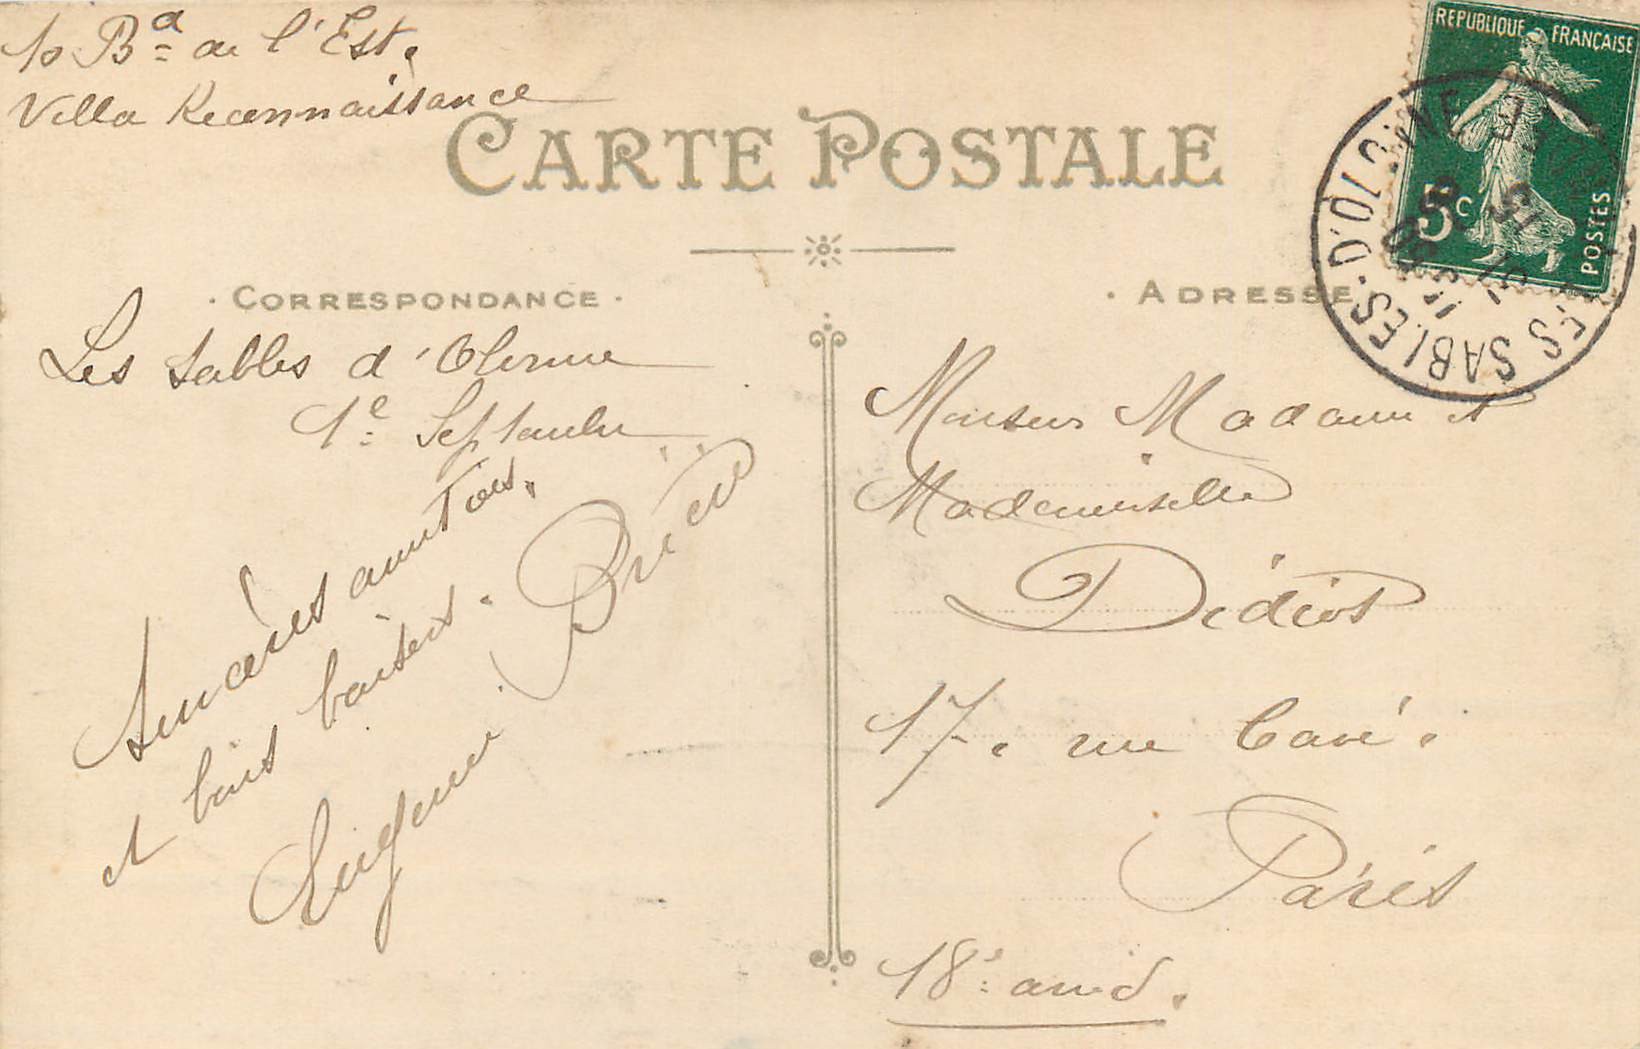 10 Bd de l'Est.
Villa Reconnaissance
CARTE POSTALE
CORRESPONDANCE
ADRESSE
REPUBLIQUE FRANÇAISE
5c
POSTES
LES SABLES-D'OLONNE
Les Sables d'Olonne
1e Septembre
Sincères amitiés.
et bons baisers.
Eugenie Brieu
Monsieur Madame et
Mademoiselle
Didiot
17. rue Cavé.
Paris
18e arrd.